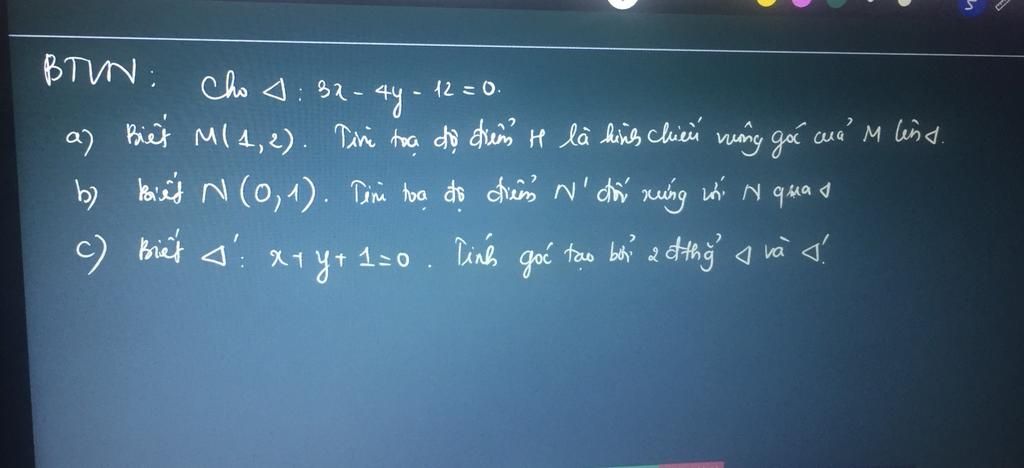 BTVN: Cho Δ: 3x - 4y - 12 = 0.
a) Biết M(1,2). Tìm toạ độ điểm H là hình chiếu vuông góc của M lên Δ.
b) Biết N(0,1). Tìm toạ độ điểm N' đối xứng với N qua Δ
c) Biết Δ': x + y + 1 = 0. Tính góc tạo bởi 2 đthg Δ và Δ'.